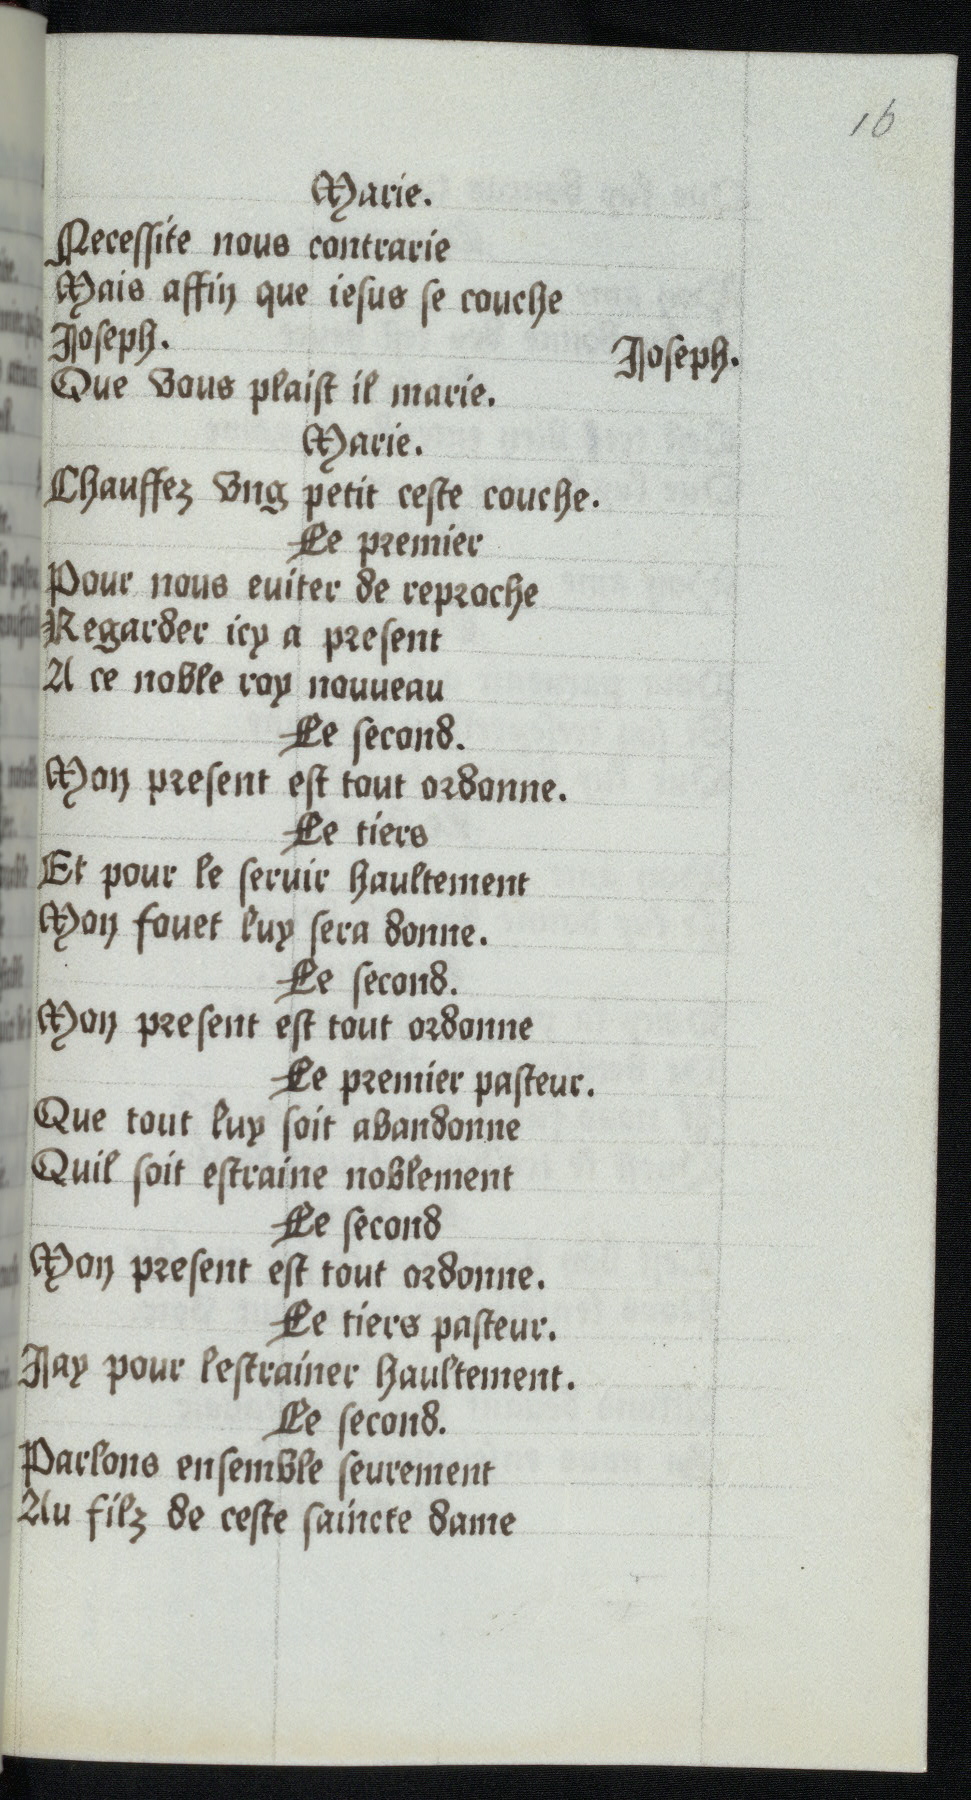 16
Marie.
Necessite nous contrarie
Mais affin que iesus se couche
Joseph. Joseph.
Que vous plaist il marie.
Marie.
Chauffez vng petit ceste couche.
Le premier
Pour nous euiter de reproche
Regarder icy a present
A ce noble roy nouueau
Le second.
Mon present est tout ordonne.
Le tiers
Et pour le seruir haultement
Mon fouet luy sera donne.
Le second.
Mon present est tout ordonne
Le premier pasteur.
Que tout luy soit abandonne
Quil soit estraine noblement
Le second
Mon present est tout ordonne.
Le tiers pasteur.
Jay pour lestrainer haultement.
Le second.
Parlons ensemble seurement
Au filz de ceste saincte dame